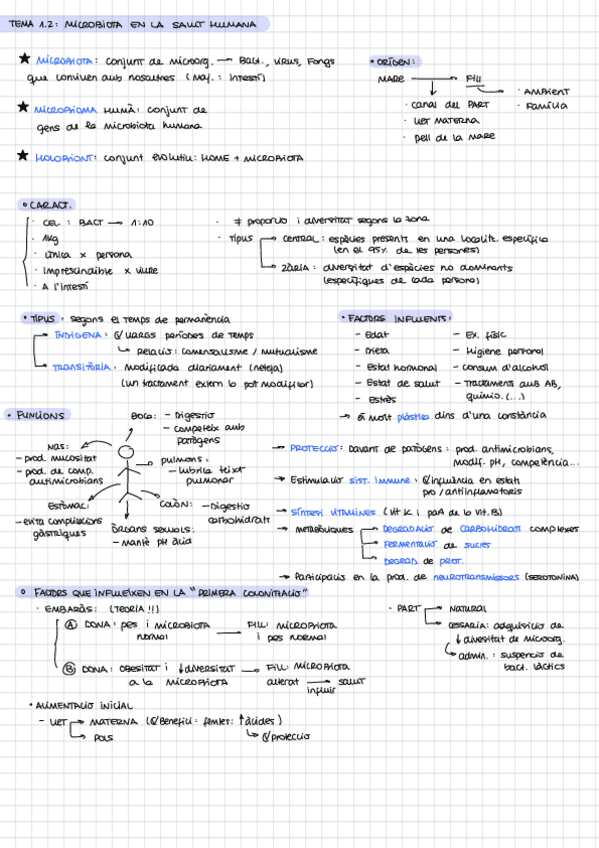 TEMA 1.2: MICROBIOTA EN LA SALUT HUMANA
★ MICROBIOTA: conjunt de microorg. → Bact., virus, Fongs
que conviuen amb nosaltres (Maj.: Intestí)
★ MICROBIOMA HUMÀ: conjunt de
gens de la microbiota humana
★ HOLOBIONT: conjunt evolutiu: HOME + MICROBIOTA
• ORÍGEN:
MARE → FILL
· canal del PART
· LLET MATERNA
· pell de la MARE
· AMBIENT
· Família
• CARACT.
· CEL : BACT → 1:10
· 1Kg
· única x persona
· Imprescindible x viure
· A l'intestí
· ≠ proporció i diversitat segons la zona
· Tipus → CENTRAL: espècies presents en una localitz. específica
(en el 95% de les persones)
→ 2ÀRIA: diversitat d'espècies no dominants
(específiques de cada persona)
• TIPUS: segons el temps de permanència
→ INDÍGENA: @ llargs períodes de temps
↳ Relació: comensalisme / mutualisme
→ TRANSITÒRIA: modificada diàriament (neteja)
(un tractament extern la pot modificar)
• FACTORS INFLUENTS:
- Edat
- Dieta
- Estat hormonal
- Estat de salut
- Estrès
- Ex. físic
- Higiene personal
- Consum d'alcohol
- Tractaments amb AB,
quimio. (...)
→ és molt plàstica dins d'una constància
• FUNCIONS
BOCA: - Digestió
- competeix amb
patògens
NAS:
- prod. mucositat
- prod. de comp.
antimicrobians
pulmons:
- lubrica teixit
pulmonar
ESTÓMAC:
- evita complicacions
gàstriques
COLON: - Digestió
carbohidrats
ÒRGANS SEXUALS:
- manté pH àcid
→ PROTECCIÓ: Davant de patògens: prod. antimicrobians,
modif. pH, competència...
→ Estimulació sist. immune: @ influència en estats
pro / antiinflamatoris
→ SÍNTESI VITAMINES (Vit K i part de la Vit. B)
→ METABÒLIQUES → DEGRADACIÓ de CARBOHIDRATS complexes
→ FERMENTACIÓ de sucres
→ DEGRAD. de PROT.
→ Participació en la prod. de NEUROTRANSMISSORS (SEROTONINA)
• FACTORS QUE INFLUEIXEN EN LA "PRIMERA COLONITZACIÓ"
· EMBARÀS: (TEORIA !!)
Ⓐ DONA: pes i microbiota
normal
→ FILL: MICROBIOTA
i pes normal
Ⓑ DONA: OBESITAT i ↓diversitat
a la MICROBIOTA
→ FILL: MICROBIOTA
alterat → SALUT
influir
· PART → NATURAL
→ CESÀRIA: adquisició de
↓ diversitat de microorg.
↳ admin.: suspensió de
bact. làctics
• ALIMENTACIÓ INICIAL
- LLET → MATERNA (@ Benefici: femtes: ↑ àcides)
↳ @ protecció
→ POLS